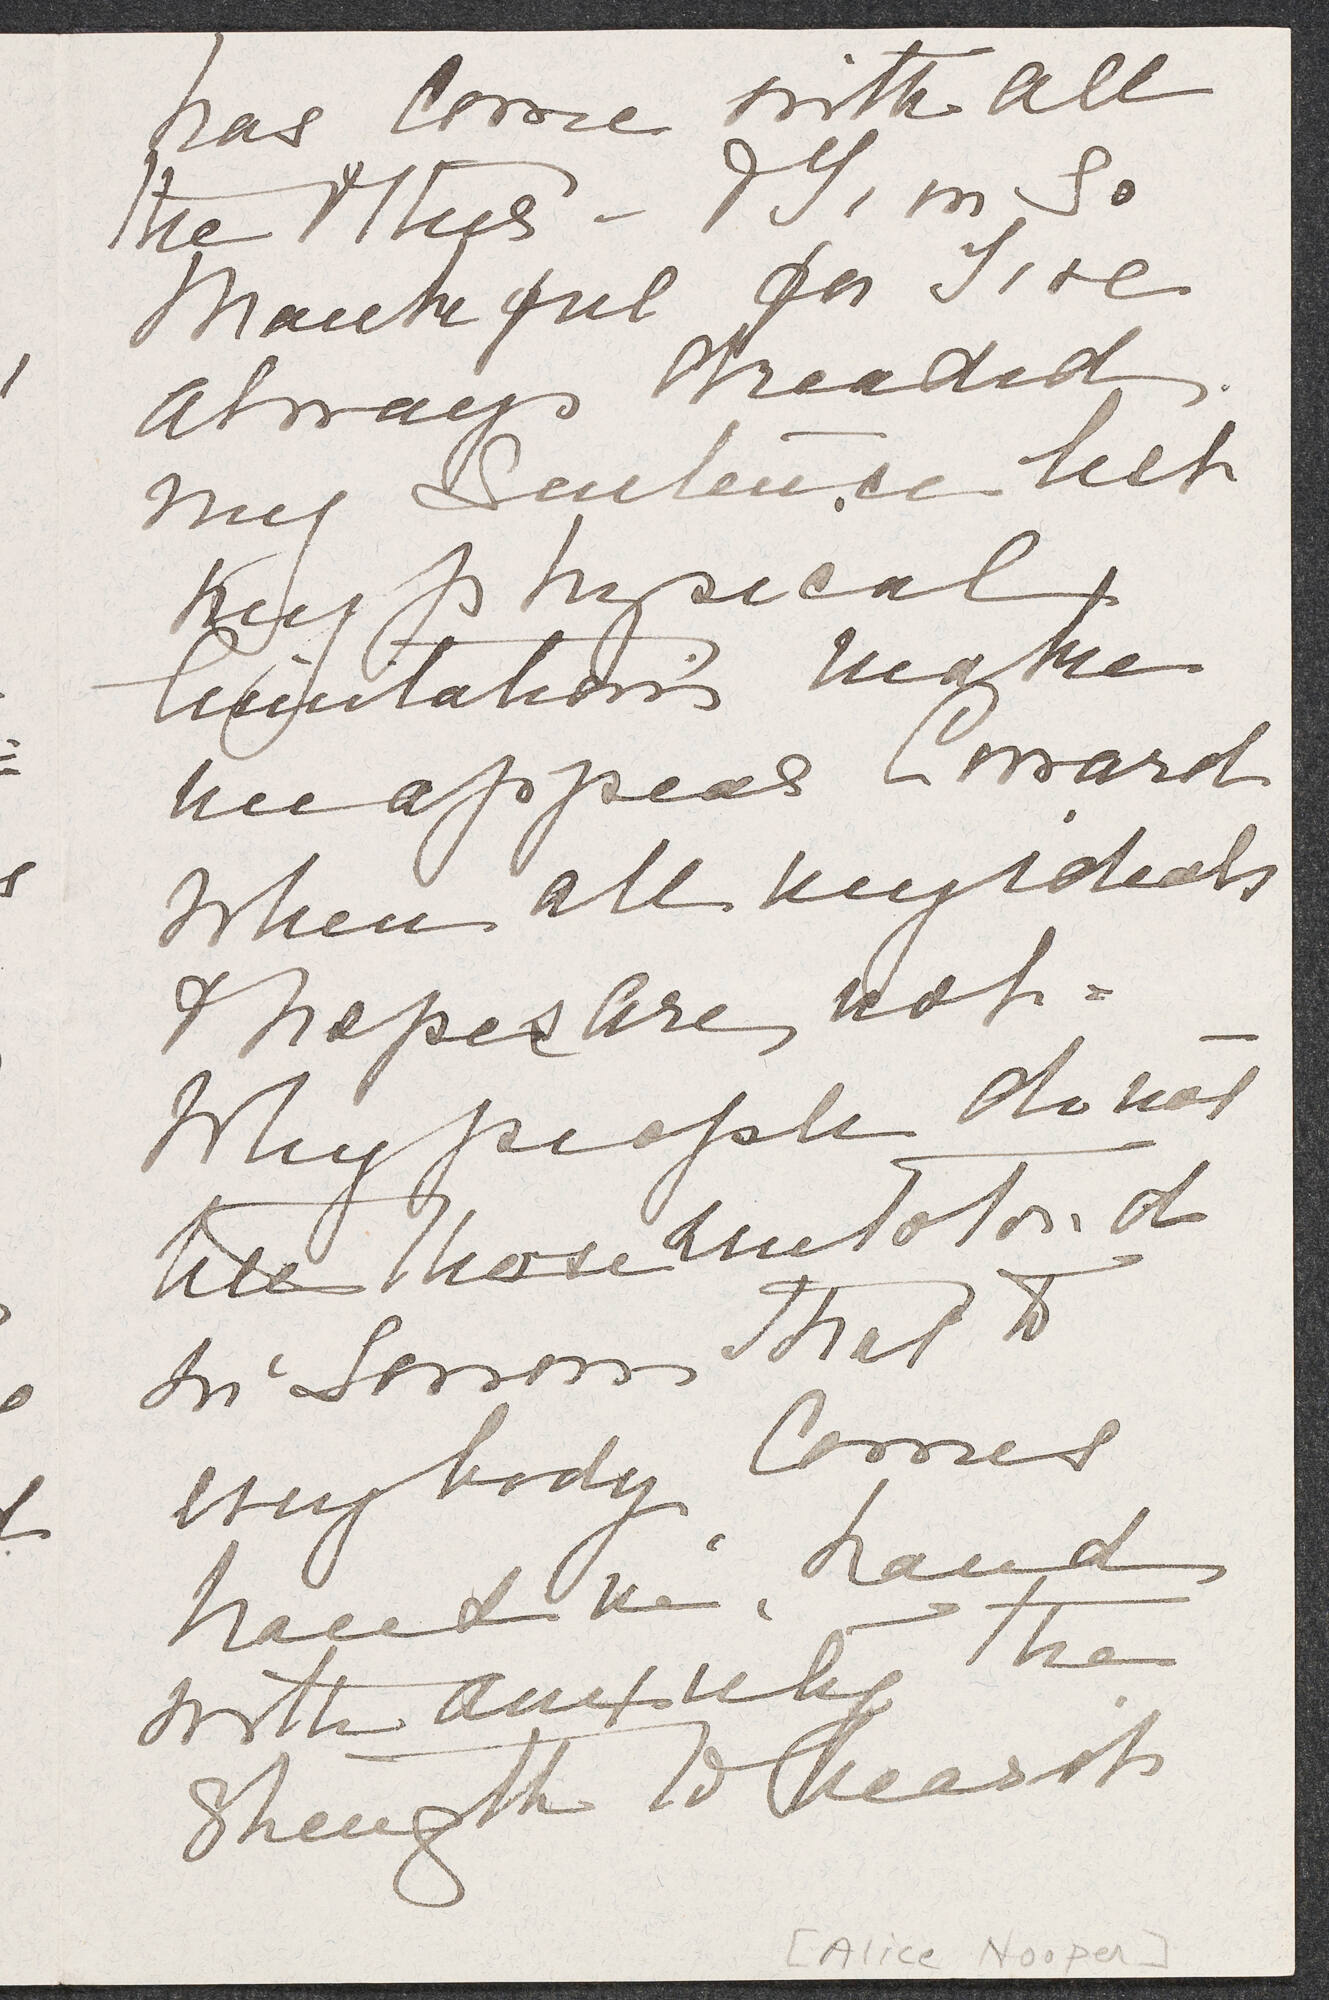 has come with all
the & thus - & I'm so
thankful for I've
always dreaded
my sentence lest
my physical
limitations make
me appear Coward
when all my ideals
& hopes are not =
Why people do not
tell those
in Sorrow that to
everybody Comes
hand in hand
with anxiety the
strength to bear it
[Alice Hooper]